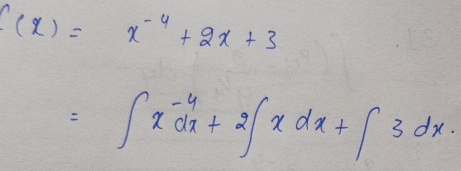 f(x) = x⁻⁴ + 2x + 3
= ∫ x⁻⁴ dx + 2∫ x dx + ∫ 3 dx.